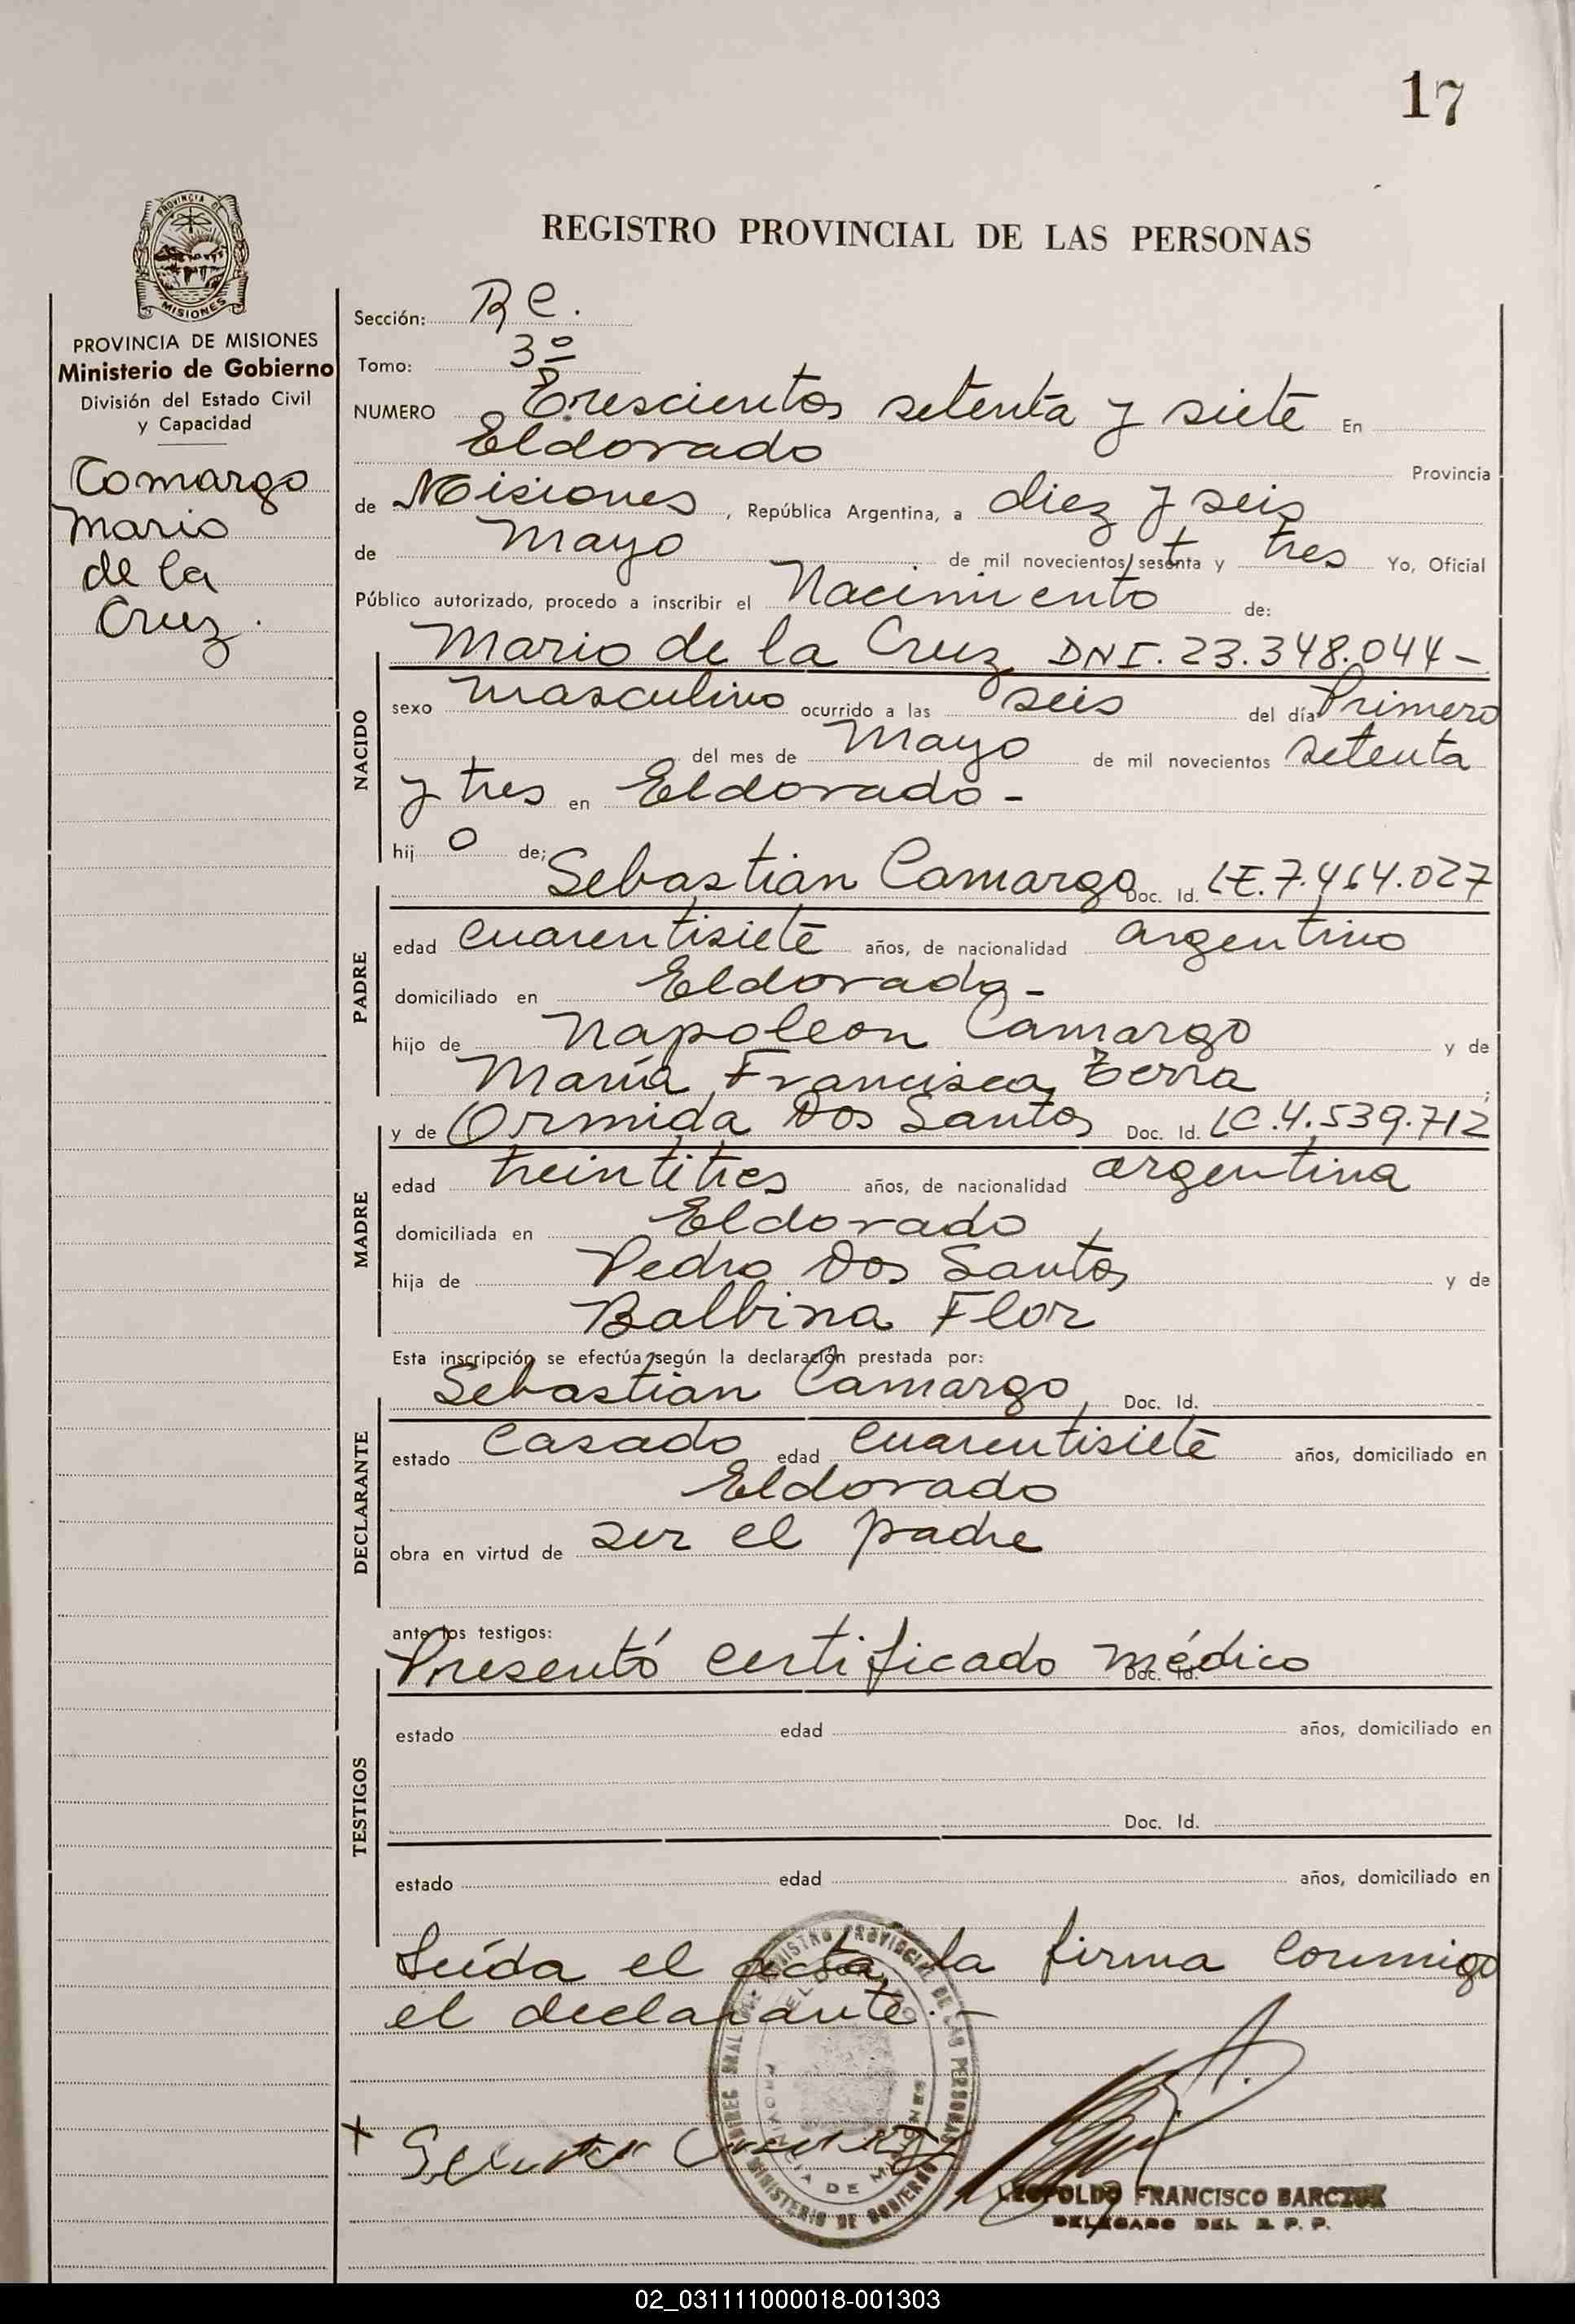 17
PROVINCIA DE
MISIONES
REGISTRO PROVINCIAL DE LAS PERSONAS
PROVINCIA DE MISIONES
Ministerio de Gobierno
División del Estado Civil
y Capacidad
Camargo
Mario
de la
Cruz.
Sección: R C.
Tomo: 3º
NUMERO Trescientos setenta y siete En
Eldorado Provincia
de Misiones, República Argentina, a diez y seis
de Mayo de mil novecientos sesenta y tres Yo, Oficial
Público autorizado, procedo a inscribir el Nacimiento de:
NACIDO
Mario de la Cruz DNI. 23.348.044-
sexo masculino ocurrido a las seis del día Primero
del mes de Mayo de mil novecientos setenta
y tres en Eldorado-
hij o de;
PADRE
Sebastian Camargo Doc. Id. LE.7.464.027
edad cuarentisiete años, de nacionalidad argentino
domiciliado en Eldorado-
hijo de Napoleon Camargo y de
María Francisca Terra;
MADRE
y de Ormida Dos Santos Doc. Id. LC.4.539.712
edad treintitres años, de nacionalidad argentina
domiciliada en Eldorado
hija de Pedro Dos Santos y de
Balbina Flor
Esta inscripción se efectúa según la declaración prestada por:
DECLARANTE
Sebastian Camargo, Doc. Id.
estado Casado edad cuarentisiete años, domiciliado en
Eldorado
obra en virtud de ser el padre
ante los testigos:
TESTIGOS
Presentó certificado médico Doc. Id.
estado edad años, domiciliado en
Doc. Id.
estado edad años, domiciliado en
Leída el acta, la firma conmigo
el declarante.-
REGISTRO PROVINCIAL DE LAS PERSONAS
MINISTERIO DE GOBIERNO
ELDORADO
PROVINCIA DE MISIONES
LEOPOLDO FRANCISCO
DELEGADO DEL R. P. P.
02_031111000018-001303